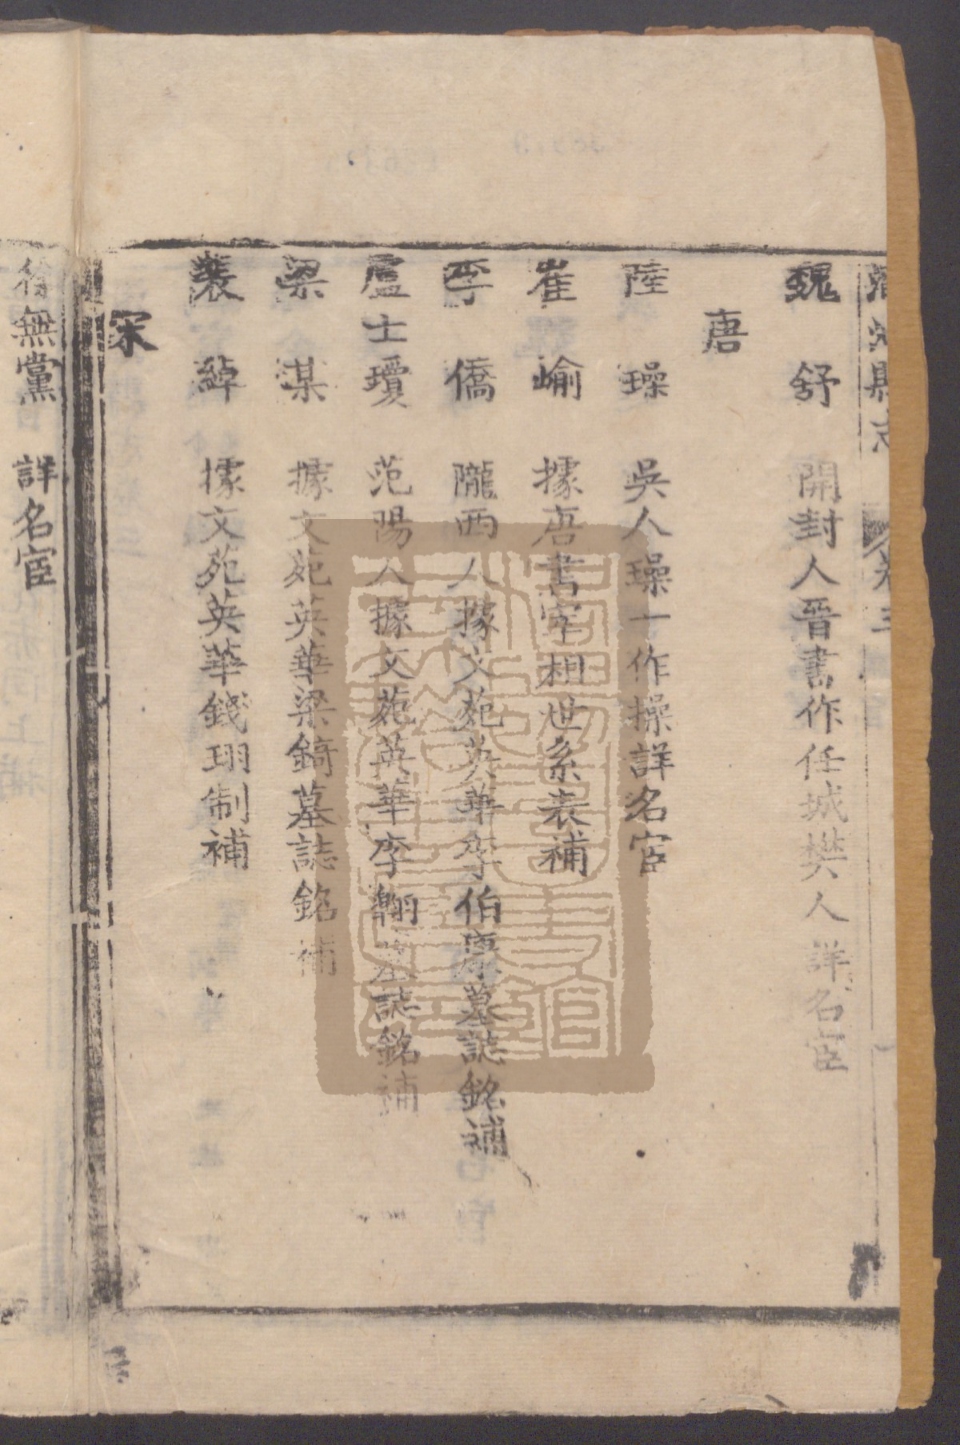 縣志 卷三
魏舒 開封人晉書作任城樊人詳名宦
唐
陸璪 吳人璪一作操詳名宦
崔崳 據唐書宰相世系表補
李僑 隴西人據文苑英華李伯康墓誌銘補
盧士瓊 范陽人據文苑英華李翱墓誌銘補
梁某 據文苑英華梁錡墓誌銘補
裴綽 據文苑英華錢珝制補
宋
徐無黨 詳名宦